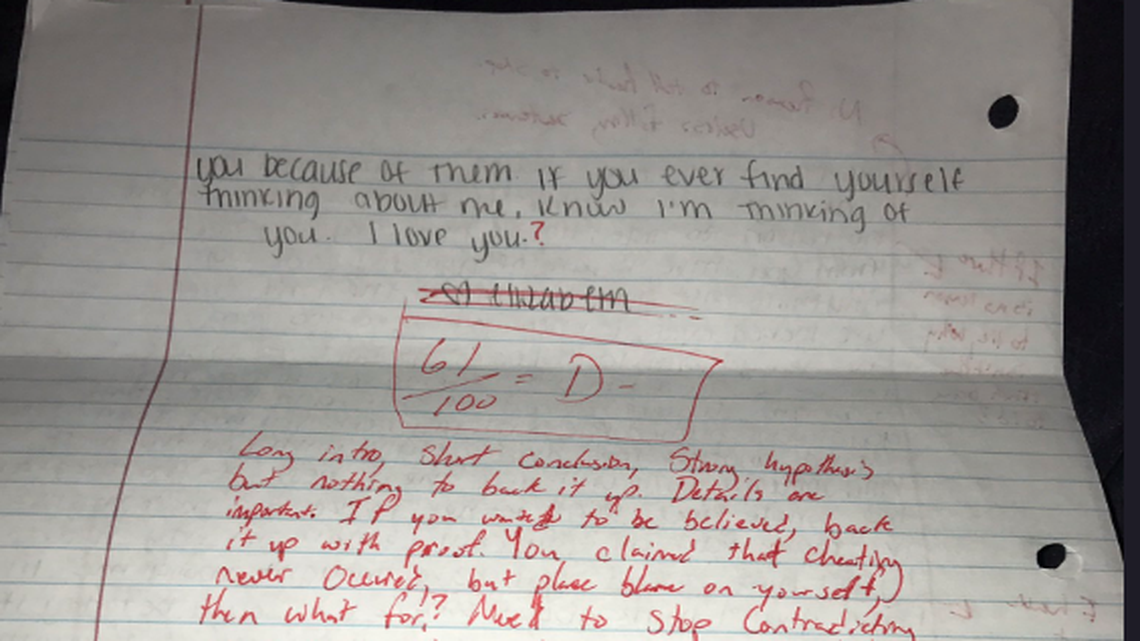 you because of them. If you ever find yourself
thinking about me, know I'm thinking of
you. I love you.?
61/100 = D-
Long intro, short conclusion, Strong hypothesis
but nothing to back it up. Details are
important. If you want to be believed, back
it up with proof. You claimed that cheating
never occured, but place blame on yourself,
then what for? Need to stop contradicting